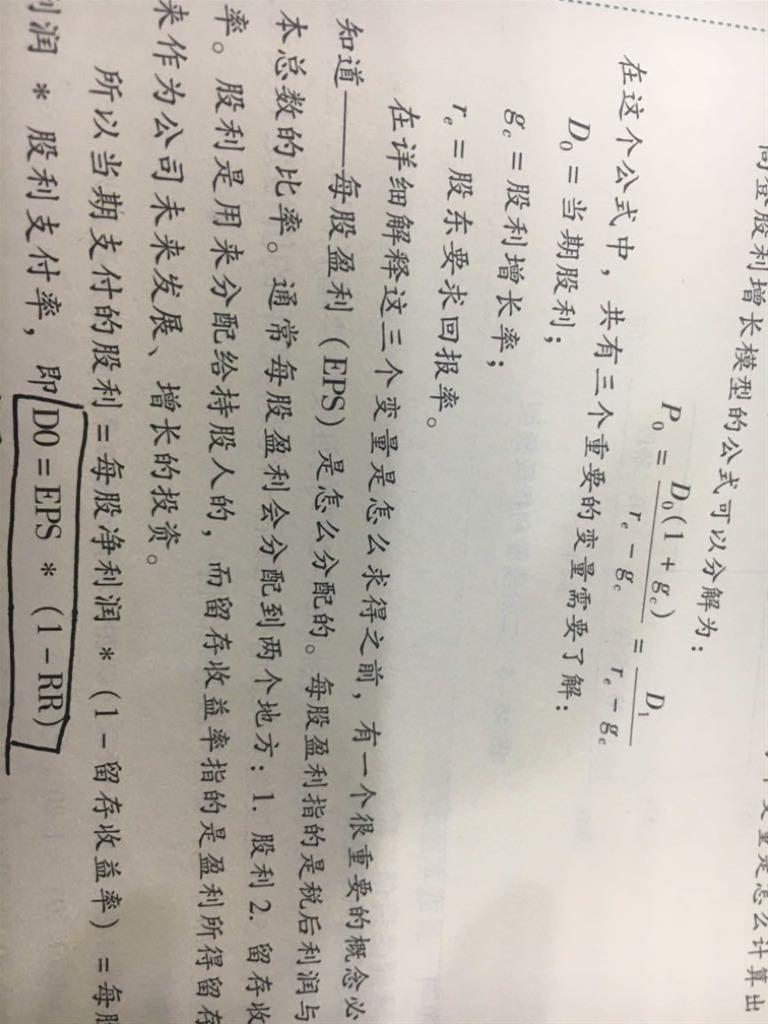 股利增长模型的公式可以分解为：
P₀ = D₀(1 + g_c) / (r_e − g_c) = D₁ / (r_e − g_c)
在这个公式中，共有三个重要的变量需要了解：
D₀ = 当期股利；
g_c = 股利增长率；
r_e = 股东要求回报率。
在详细解释这三个变量是怎么求得之前，有一个很重要的概念必
知道——每股盈利（EPS）是怎么分配的。每股盈利指的是税后利润与
本总数的比率。通常每股盈利会分配到两个地方：1. 股利 2. 留存收
率。股利是用来分配给持股人的，而留存收益率指的是盈利所得留存
来作为公司未来发展、增长的投资。
所以当期支付的股利 = 每股净利润 *（1 − 留存收益率）= 每股
利润 * 股利支付率，即 D0 = EPS *（1 − RR）